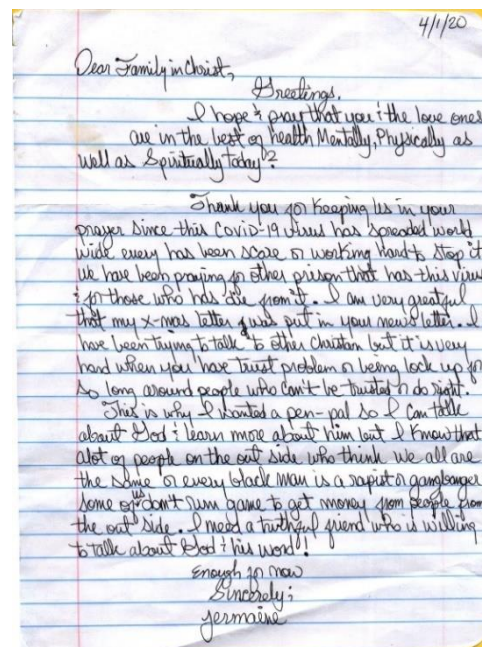 4/1/20
Dear Family in Christ,
Greetings,
I hope & pray that you & the love ones
are in the best of health Mentally, Physically as
well as Spiritually today!?
Thank you for Keeping us in your
prayer since this Covid-19 virus has spreaded world
wide every has been scare or working hard to stop it
we have been praying for other prison that has this virus
& for those who has die from it. I am very greatful
that my x-mas letter was put in your news letter. I
have been trying to talk to other christian but it is very
hard when you have trust problem or being lock up for
so long around people who can't be trusted to do right.
This is why I wanted a pen-pal so I can talk
about God & learn more about him but I Know that
alot of people on the out side who think we all are
the same or every black man is a rapist or gangbanger
some of us don't run game to get money from people from
the out side. I need a truthful friend who is willing
to talk about God & his word!
Enough for now
Sincerely;
Jermaine